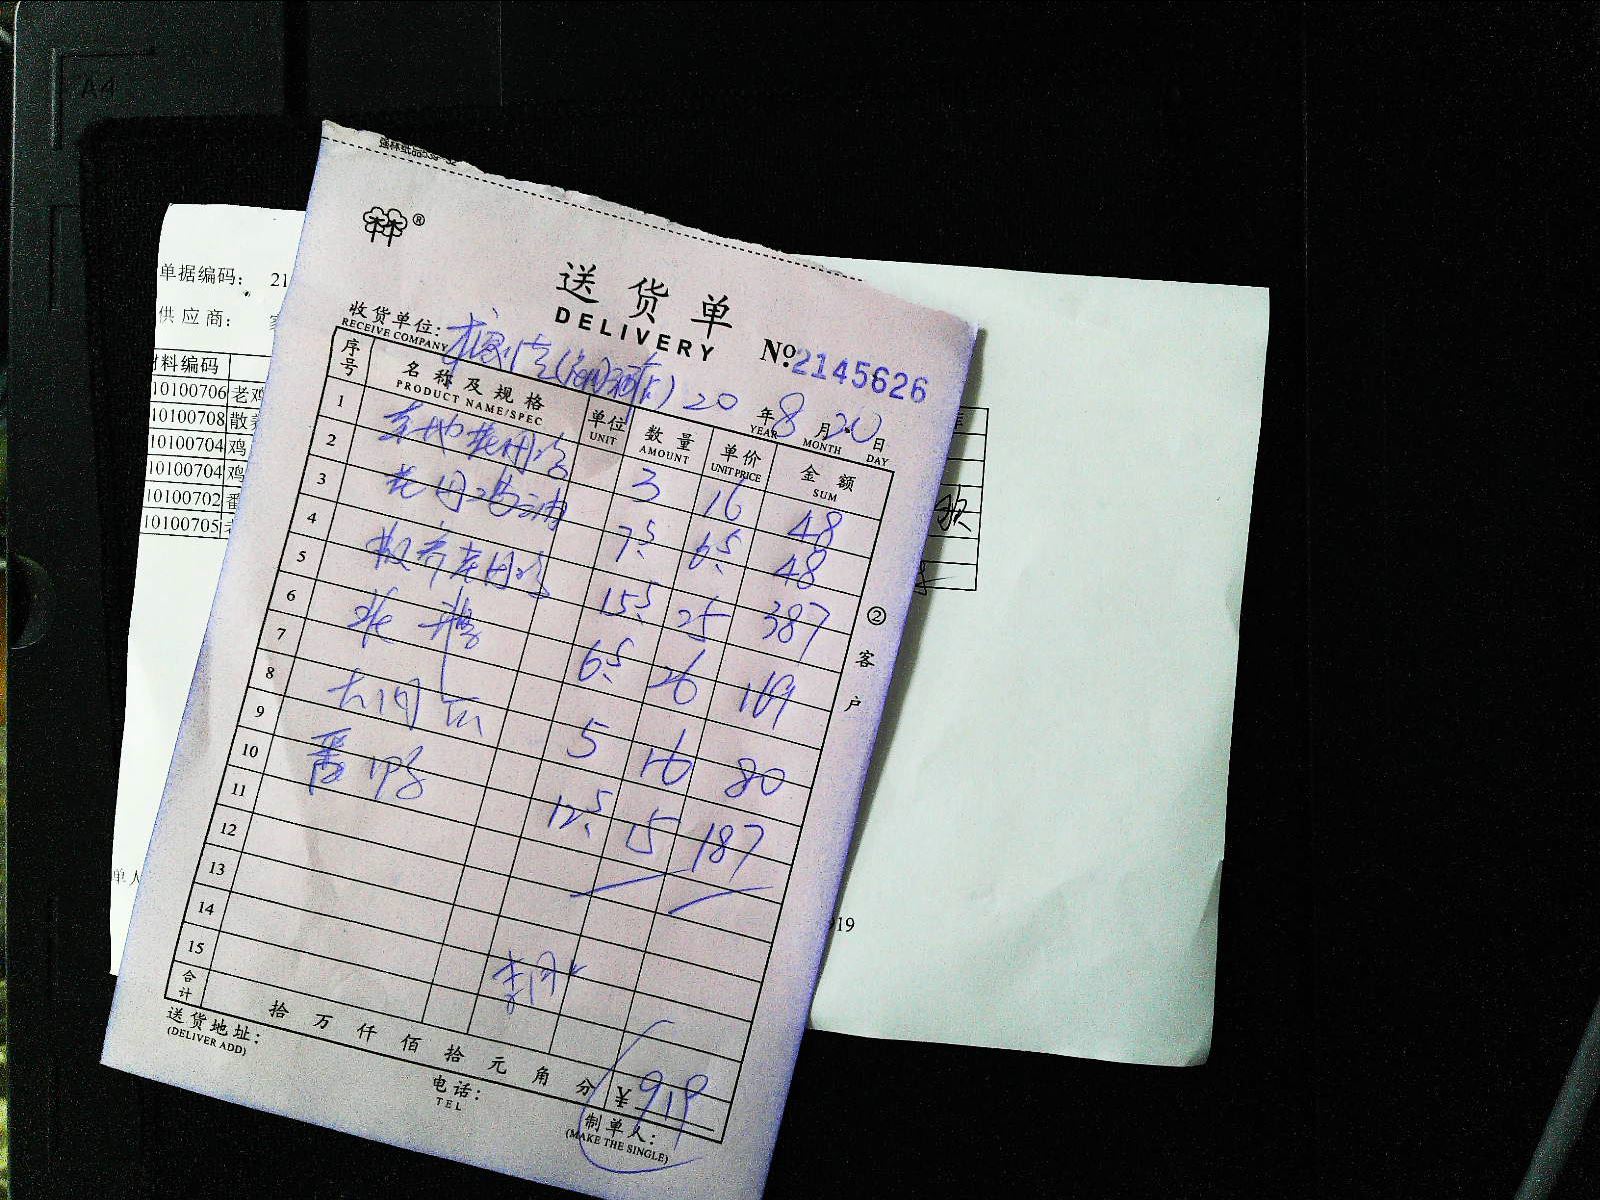 A4
强林纸品
单据编码： 21
供应商：
材料编码
10100706 老鸡
10100708 散养
10100704 鸡
10100704 鸡
10100702 番
10100705 老
单人
919
®
送货单
DELIVERY
No. 2145626
收货单位：
RECEIVE COMPANY
20 年 8 月 20 日
YEAR MONTH DAY
序号 名称及规格 单位 数量 单价 金额
PRODUCT NAME/SPEC UNIT AMOUNT UNIT PRICE SUM
1 3 16 48
2 7.5 6.5 48
3 散养老母鸡 15.5 25 387
4 6.5 26 169
5 5 16 80
6 番鸭 12.5 15 187
7
8
9
10
11
12
13
14
15
合计 拾 万 仟 佰 拾 元 角 分 ¥ 919
② 客户
送货地址：
(DELIVER ADD)
电话：
TEL
制单人：
(MAKE THE SINGLE)